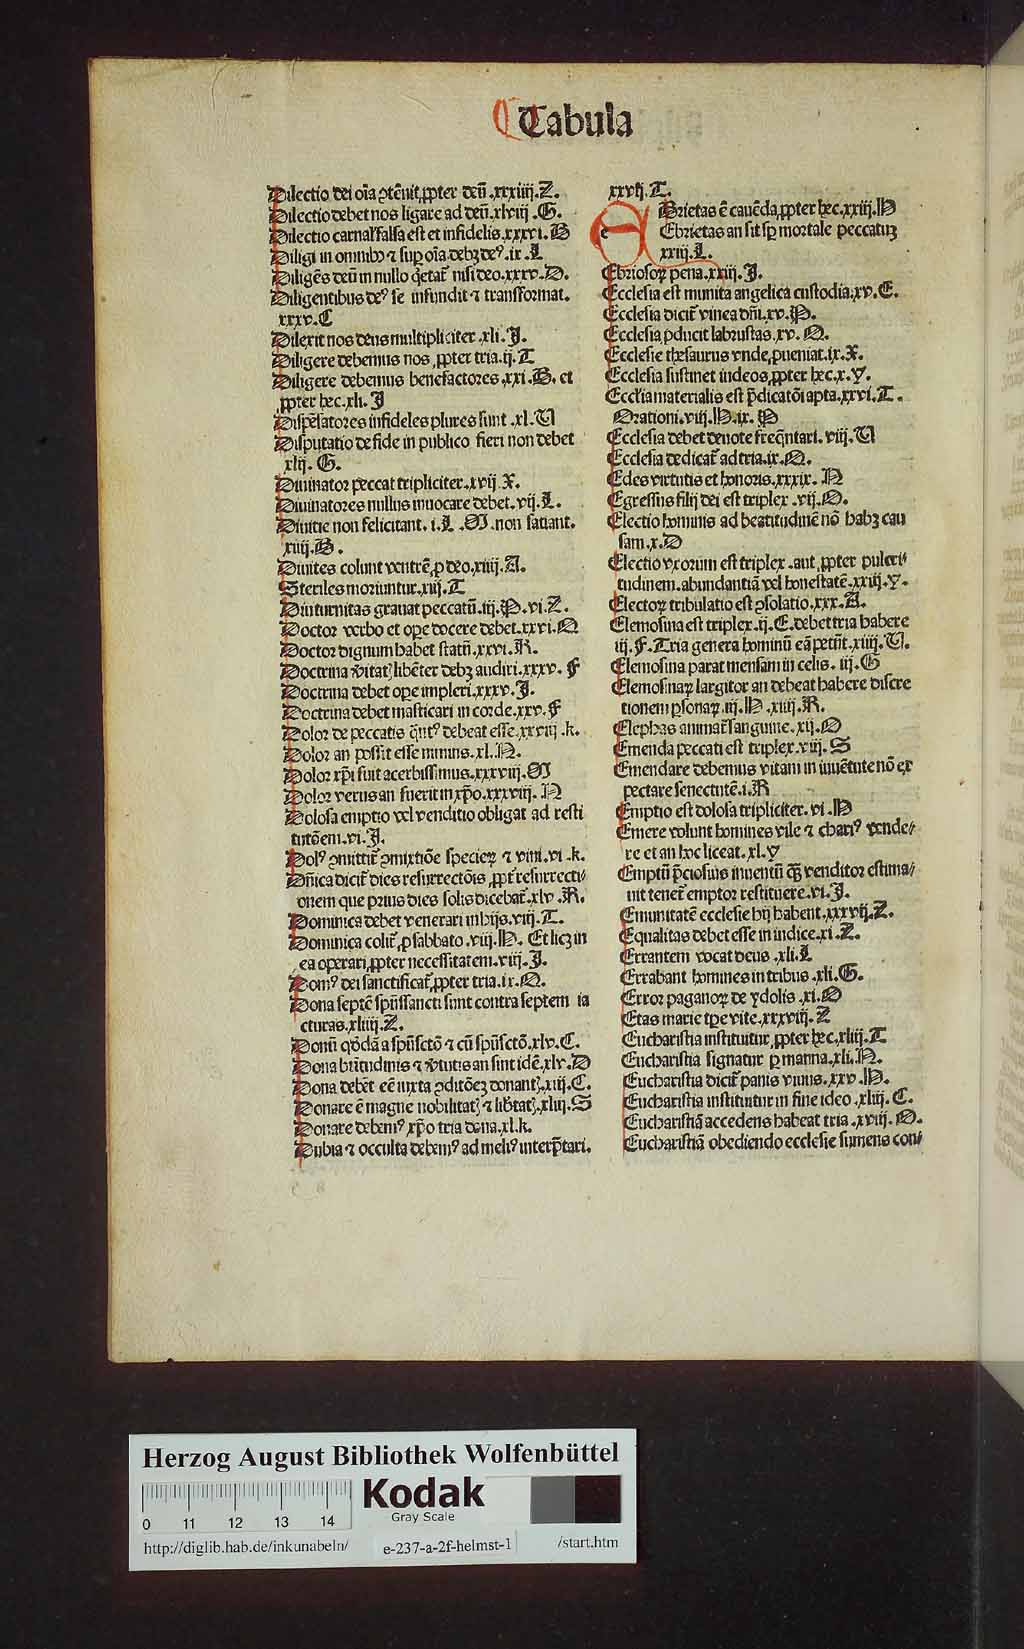 Tabula
Dilectio dei oīa ꝯtēnit ꝓpter deū .xxxiiij.Z.
Dilectio debet nos ligare ad deū.xlviij .G.
Dilectio carnal' falsa est et infidelis.xxxvi.B
Diligi in omnibꝰ ⁊ suꝑ oīa debꝫ deꝰ.ix.L
Diligēs deū in nullo q̄etat' nisi deo.xxxv.D.
Diligentibus deꝰ se infundit ⁊ transformat.
xxxv.C
Dilexit nos deus multipliciter .xli.J.
Diligere debemus nos ꝓpter tria.ij.T
Diligere debemus benefactores .xxi.B. et
ꝓpter hec.xli.J
Dispēsatores infideles plures sunt .xl.U
Disputatio de fide in publico fieri non debet
xlij.G.
Diuinator peccat tripliciter.xvij.X.
Diuinatores nullus inuocare debet.vij.L.
Diuitie non felicitant. i.L .M .non satiant.
xiiij.B.
Diuites colunt ventrē ꝓ deo.xiiij.A.
Steriles moriuntur.xij.T
Diuturnitas grauat peccatū.iij.P.vi.Z.
Doctor verbo et oꝑe docere debet.xxvi.Q
Doctor dignum habet statū.xxvi.R.
Doctrina v̄itatꝭ libēter debꝫ audiri.xxxv.F
Doctrina debet oꝑe impleri.xxxv.J.
Doctrina debet masticari in corde.xxv.F
Dolor de peccatis q̄ntꝰ debeat esse.xxviij.k.
Dolor an possit esse nimius.xl.N.
Dolor xp̄i fuit acerbissimus.xxxviij.M
Dolor verus an fuerit in xp̄o.xxxviij. N
Dolosa emptio vel venditio obligat ad resti
tutōem.vi.J.
Dolꝰ ꝯmittit' ꝯmixtiōe specieꝝ ⁊ vini.vi.k.
Dn̄ica dicit' dies resurrectōis ꝓpt' resurrecti⸗
onem que prius dies solis dicebat'.xlv.R.
Dominica debet venerari in hijs.viij.T.
Dominica colit' ꝓ sabbato.viij.H. Et licꝫ in
ea operari ꝓpter necessitatem.viij.J.
Domꝰ dei sanctificat' ꝓpter tria.ix.Q.
Dona septē sp̄ūssancti sunt contra septem ia
cturas.xliiij.Z.
Donū qōdā a sp̄ūsctō ⁊ cū sp̄ūsctō.xlv.C.
Dona br̄itudinis ⁊ v̄tutis an sint idē.xlv.D
Dona debēt eē iuxta ꝯditōeꝫ donantꝭ.xiij.C.
Donare ē magne nobilitatꝭ ⁊ lib̄tatꝭ.xliij.S
Donare debemꝰ xp̄o tria dona.xl.k.
Dubia ⁊ occulta debemꝰ ad meliꝰ interp̄tari.
xxvij.T.
EBrietas ē cauēda ꝓpter hec.xxiij.H
Ebrietas an sit sꝑ mortale peccatuꝫ
xxiij.L.
Ebriosoꝝ pena.xxiij.J.
Ecclesia est munita angelica custodia.xv.E.
Ecclesia dicit' vinea dn̄i.xv.P.
Ecclesia ꝓducit labruscas.xv.Q.
Ecclesie thesaurus vnde ꝓueniat.ix.X.
Ecclesia sustinet iudeos ꝓpter hec.x.Y.
Eccl'ia materialis est p̄dicatōi apta.xxvi.T.
Orationi.viij.H.ix.P
Ecclesia debet deuote freq̄ntari.viij.U
Ecclesia dedicat' ad tria.ix.Q.
Edes virtutis et honoris.xxxix.N
Egressus filij dei est triplex .vij.O.
Electio hominis ad beatitudinē nō habꝫ cau
sam.x.D
Electio vxorum est triplex .aut ꝓpter pulcri⸗
tudinem.abundantiā vel honestatē.xxiij.Y.
Electoꝝ tribulatio est ꝯsolatio.xxx.A.
Elemosina est triplex.ij.E.debet tria habere
iij.F.Tria genera hominū eā petūt.xiiij.U.
Elemosina parat mensam in celis. iij.G
Elemosinaꝝ largitor an debeat habere discre
tionem ꝑsonaꝝ.iij.H.xiiij.R.
Elephas animat' sanguine.xij.O
Emenda peccati est triplex.viij.S
Emendare debemus vitam in iuuētute nō ex
pectare senectutē.i.R
Emptio est dolosa tripliciter.vi.H
Emere volunt homines vile ⁊ chariꝰ vende⸗
re et an hoc liceat.xl.Y
Emptū p̄ciosius inuentū qꝫ venditor estima⸗
uit tenet' emptor restituere.vi.J.
Emunitatē ecclesie hij habent.xxxvij.Z.
Equalitas debet esse in iudice.xi.Z.
Errantem vocat deus .xli.L
Errabant homines in tribus.xli.G.
Error paganoꝝ de ydolis.xi.O
Etas marie tꝑe vite.xxxviij.Z
Eucharistia instituitur ꝓpter hec.xliij.T
Eucharistia signatur ꝑ manna.xli.N.
Eucharistia dicit' panis viuus.xxv.H.
Eucharistia instituitur in fine ideo .xliij.C.
Eucharistiā accedens habeat tria .xviij.O.
Eucharistiā obediendo ecclesie sumens con⸗
Herzog August Bibliothek Wolfenbüttel
Kodak
Gray Scale
0 11 12 13 14
http://diglib.hab.de/inkunabeln/ e-237-a-2f-helmst-1 /start.htm